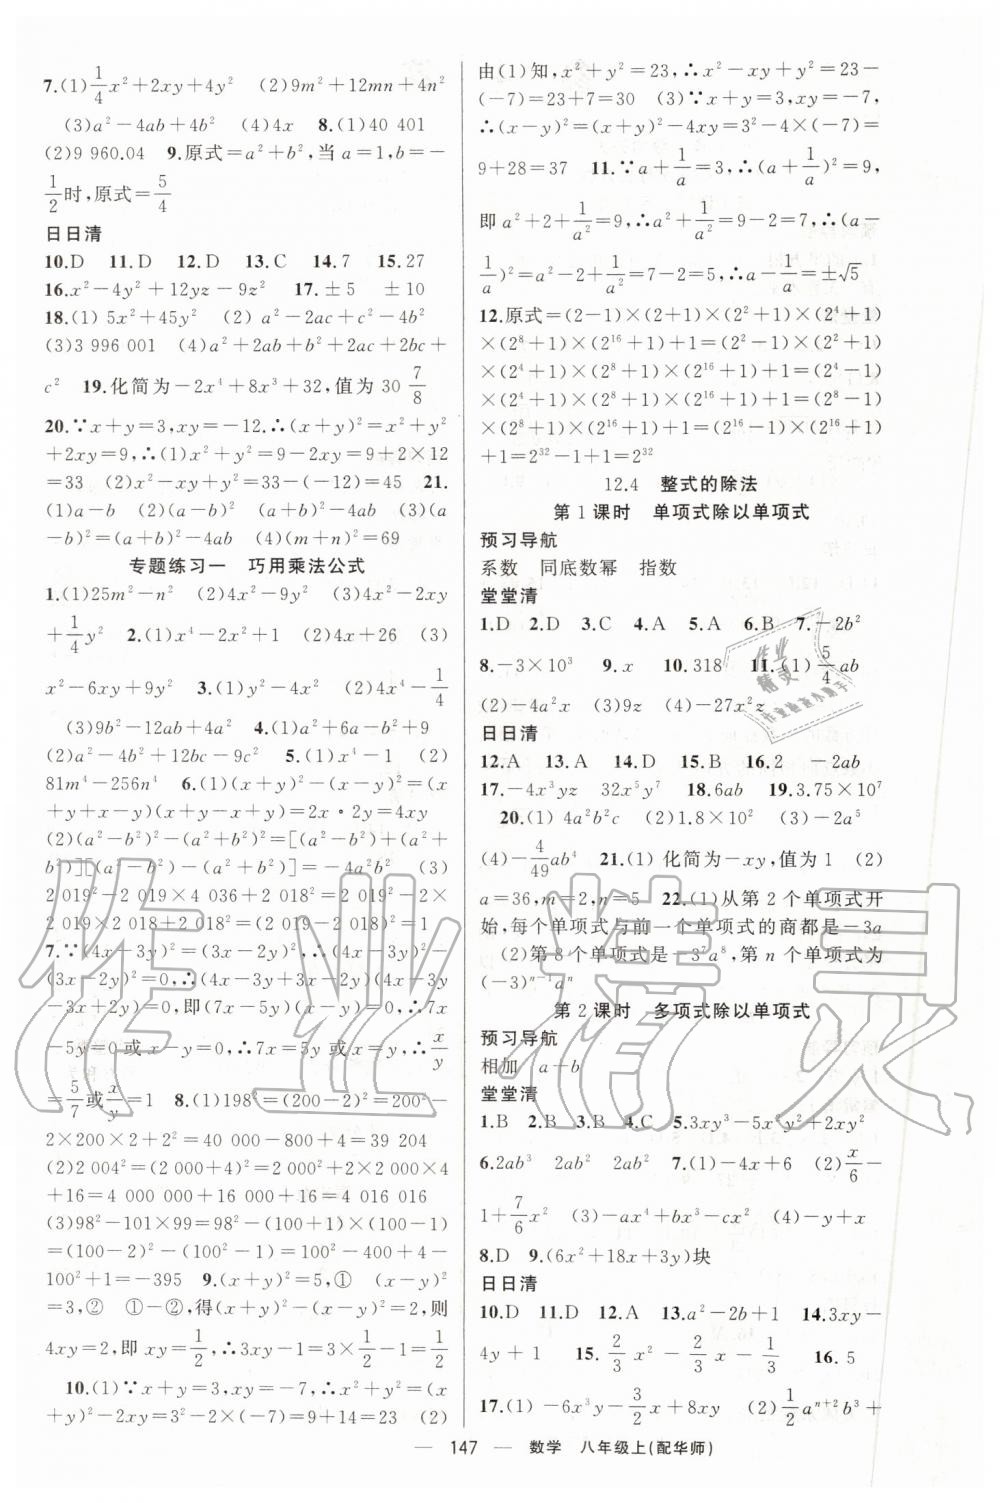 7.(1)\frac{1}{4}x²+2xy+4y² (2)9m²+12mn+4n²
(3)a²-4ab+4b² (4)4x 8.(1)40 401
(2)9 960.04 9.原式=a²+b²,当a=1,b=-
\frac{1}{2}时,原式=\frac{5}{4}
日日清
10.D 11.D 12.D 13.C 14.7 15.27
16.x²-4y²+12yz-9z² 17.±5 ±10
18.(1) 5x²+45y² (2) a²-2ac+c²-4b²
(3)3 996 001 (4)a²+2ab+b²+2ac+2bc+
c² 19.化简为-2x⁴+8x³+32,值为30\frac{7}{8}
20.∵x+y=3,xy=-12,∴(x+y)²=x²+y²
+2xy=9,∴(1)x²+y²=9-2xy=9+2×12
=33 (2)x²-xy+y²=33-(-12)=45 21.
(1)a-b (2)(a-b)²=(a+b)²-4ab (3)(a
-b)²=(a+b)²-4ab (4)(m+n)²=69
专题练习一 巧用乘法公式
1.(1)25m²-n² (2)4x²-9y² (3)4x²-2xy
+\frac{1}{4}y² 2.(1)x⁴-2x²+1 (2)4x+26 (3)
x²-6xy+9y² 3.(1)y²-4x² (2)4x⁴-\frac{1}{4}
(3)9b²-12ab+4a² 4.(1)a²+6a-b²+9
(2)a²-4b²+12bc-9c² 5.(1)x⁴-1 (2)
81m⁴-256n⁴ 6.(1)(x+y)²-(x-y)²=(x
+y+x-y)(x+y-x+y)=2x·2y=4xy
(2)(a²-b²)²-(a²+b²)²=[(a²-b²)+(a²+
b²)][(a²-b²)-(a²+b²)]=-4a²b² (3)
2 019²-2 019×4 036+2 018²=2 019²-2×
2 019×2 018+2 018²=(2 019-2 018)²=1
7.∵(4x-3y)²=(3x-2y)²,∴(4x-3y)²-
(3x-2y)²=0,∴(4x-3y+3x-2y)(4x-
3y-3x+2y)=0,即(7x-5y)(x-y)=0,∴7x
-5y=0或x-y=0,∴7x=5y或x=y,∴\frac{x}{y}
=\frac{5}{7}或\frac{x}{y}=1 8.(1)198²=(200-2)²=200²-
2×200×2+2²=40 000-800+4=39 204
(2)2 004²=(2 000+4)²=2 000²+2×2 000×4
+16=4 000 000+16 000+16=4 016 016
(3)98²-101×99=98²-(100+1)×(100-1)
=(100-2)²-(100²-1)=100²-400+4-
100²+1=-395 9.(x+y)²=5,① (x-y)²
=3,② ①-②,得(x+y)²-(x-y)²=2,则
4xy=2,即xy=\frac{1}{2},∴3xy-1=3×\frac{1}{2}-1=\frac{1}{2}
10.(1)∵x+y=3,xy=-7,∴x²+y²=(x
+y)²-2xy=3²-2×(-7)=9+14=23 (2)
由(1)知,x²+y²=23,∴x²-xy+y²=23-
(-7)=23+7=30 (3)∵x+y=3,xy=-7,
∴(x-y)²=(x+y)²-4xy=3²-4×(-7)=
9+28=37 11.∵a+\frac{1}{a}=3,∴(a+\frac{1}{a})²=9,
即a²+2+\frac{1}{a²}=9,∴a²+\frac{1}{a²}=9-2=7,∴(a-
\frac{1}{a})²=a²-2+\frac{1}{a²}=7-2=5,∴a-\frac{1}{a}=±√5
12.原式=(2-1)×(2+1)×(2²+1)×(2⁴+1)
×(2⁸+1)×(2¹⁶+1)+1=(2²-1)×(2²+1)
×(2⁴+1)×(2⁸+1)×(2¹⁶+1)+1=(2⁴-1)
×(2⁴+1)×(2⁸+1)×(2¹⁶+1)+1=(2⁸-1)
×(2⁸+1)×(2¹⁶+1)+1=(2¹⁶-1)×(2¹⁶+1)
+1=2³²-1+1=2³²
12.4 整式的除法
第1课时 单项式除以单项式
预习导航
系数 同底数幂 指数
堂堂清
1.D 2.D 3.C 4.A 5.A 6.B 7.-2b²
8.-3×10³ 9.x 10.318 11.(1)\frac{5}{4}ab
(2)-4a²x (3)9z (4)-27x²z
日日清
12.A 13.A 14.D 15.B 16.2 -2ab
17.-4x³yz 32x⁵y⁷ 18.6ab 19.3.75×10⁷
20.(1) 4a²b²c (2)1.8×10² (3)-2a⁵
(4)-\frac{4}{49}ab⁴ 21.(1) 化简为-xy,值为1 (2)
a=36,m=2,n=5 22.(1)从第2个单项式开
始,每个单项式与前一个单项式的商都是-3a
(2)第8个单项式是-3⁷a⁸,第n个单项式为
(-3)ⁿ⁻¹aⁿ
第2课时 多项式除以单项式
预习导航
相加 a+b
堂堂清
1.B 2.B 3.B 4.C 5.3xy³-5x²y²+2xy²
6.2ab³ 2ab² 2ab² 7.(1)-4x+6 (2)\frac{x}{6}-
1+\frac{7}{6}x² (3)-ax⁴+bx³-cx² (4)-y+x
8.D 9.(6x²+18x+3y)块
日日清
10.D 11.D 12.A 13.a²-2b+1 14.3xy-
4y+1 15.\frac{2}{3}x²-\frac{2}{3}x-\frac{1}{3} 16.5
17.(1) -6x³y-\frac{3}{2}x+3y² (2)\frac{1}{2}aⁿ⁺²b³+
— 147 — 数学 八年级上(配华师)
作业精灵
作业
精灵